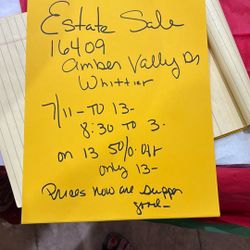 Estate Sale
16409
Amber Vally Dr
Whittier
7/11 - TO 13-
8:30 TO 3.
on 13 50% off
only 13-
Prices now are supper
good-